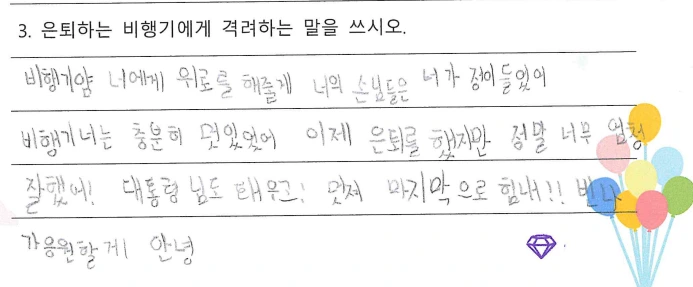 3. 은퇴하는 비행기에게 격려하는 말을 쓰시오.
비행기얌 너에게 위로를 해줄게 너의 손님들은 너가 정이들었어
비행기너는 충분히 멋있었어 이제 은퇴를 했지만 정말 너무 엄청
잘했어! 대통령님도 태우고! 멋져 마지막으로 힘내!! 반나
가응원할게 안녕